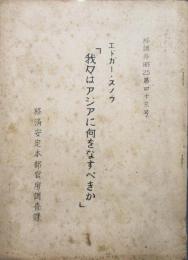 経調資料25第四十三号
エドガー・スノウ
「我々はアジアに何をなすべきか」
経済安定本部官房調査課